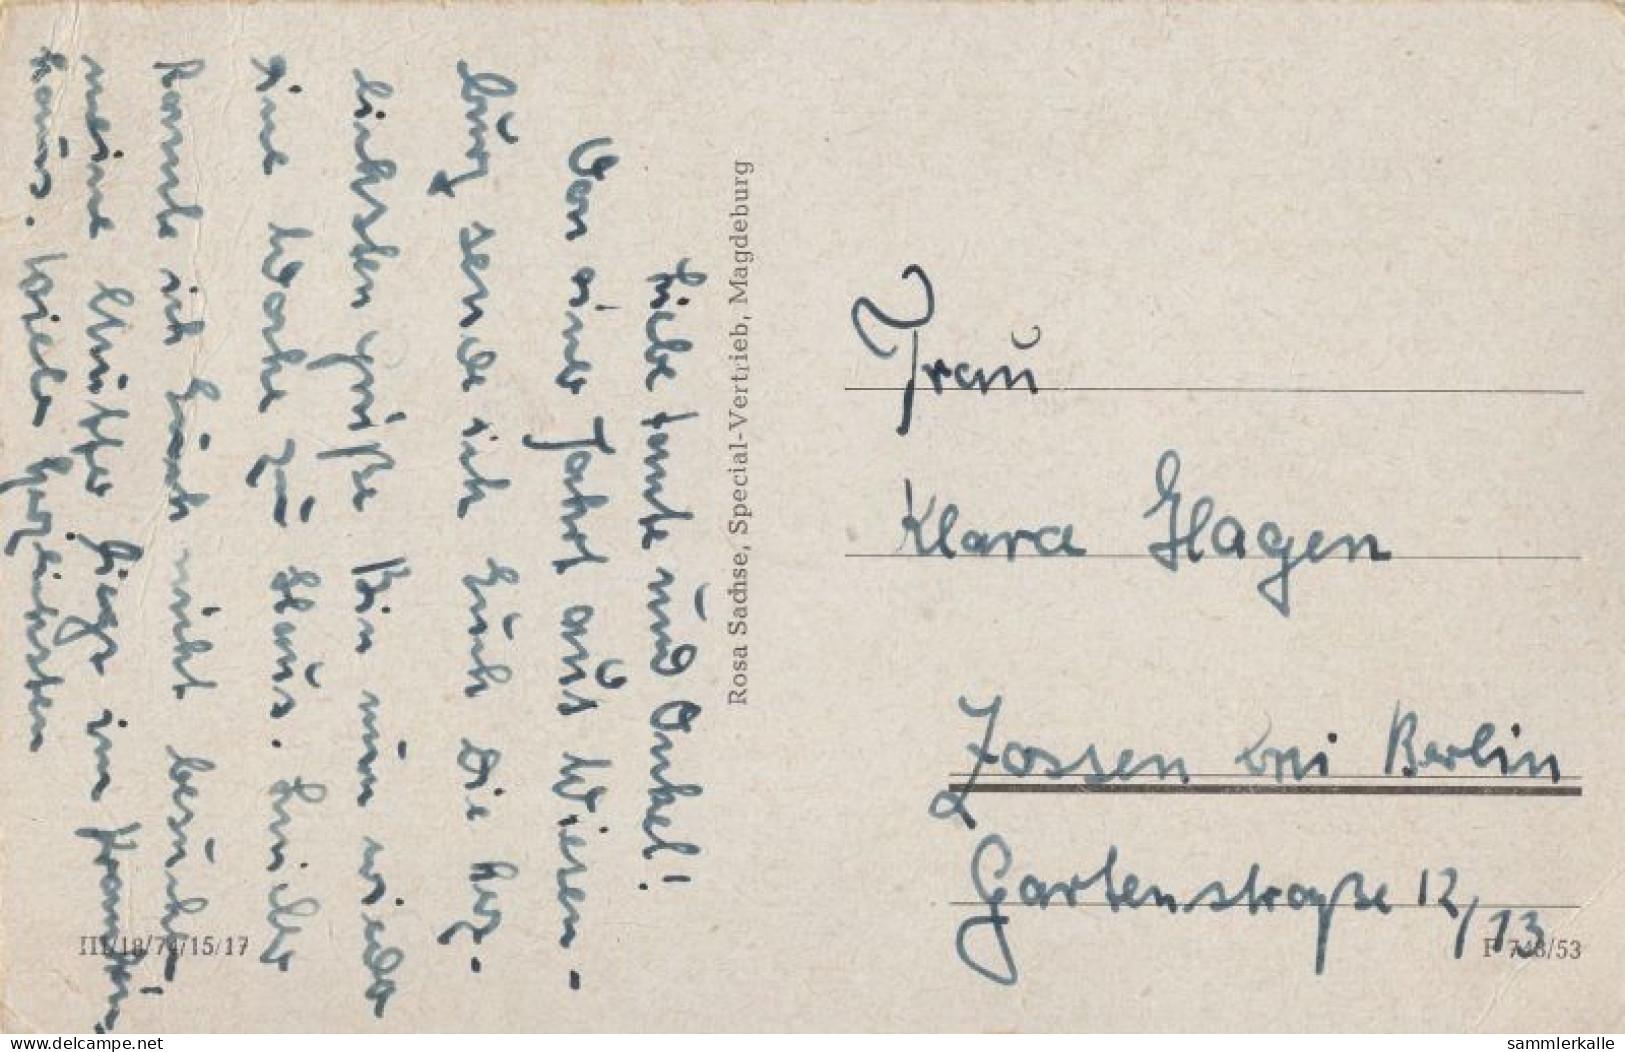 Liebe Tante und Onkel!
Von einer Fahrt aus Wiesen-
burg sende ich Euch die herz-
lichsten Grüße Bin nun wieder
eine Woche zu Haus. Leider
konnte ich Euch nicht besuchen
meine Mutter liegt im Kranken-
haus. Viele herzlichsten
Rosa Sachse, Special-Vertrieb, Magdeburg
Frau
Klara Hagen
Zossen bei Berlin
Gartenstraße 12/13
III/18/74/15/17
F 748/53
www.delcampe.net
sammlerkalle